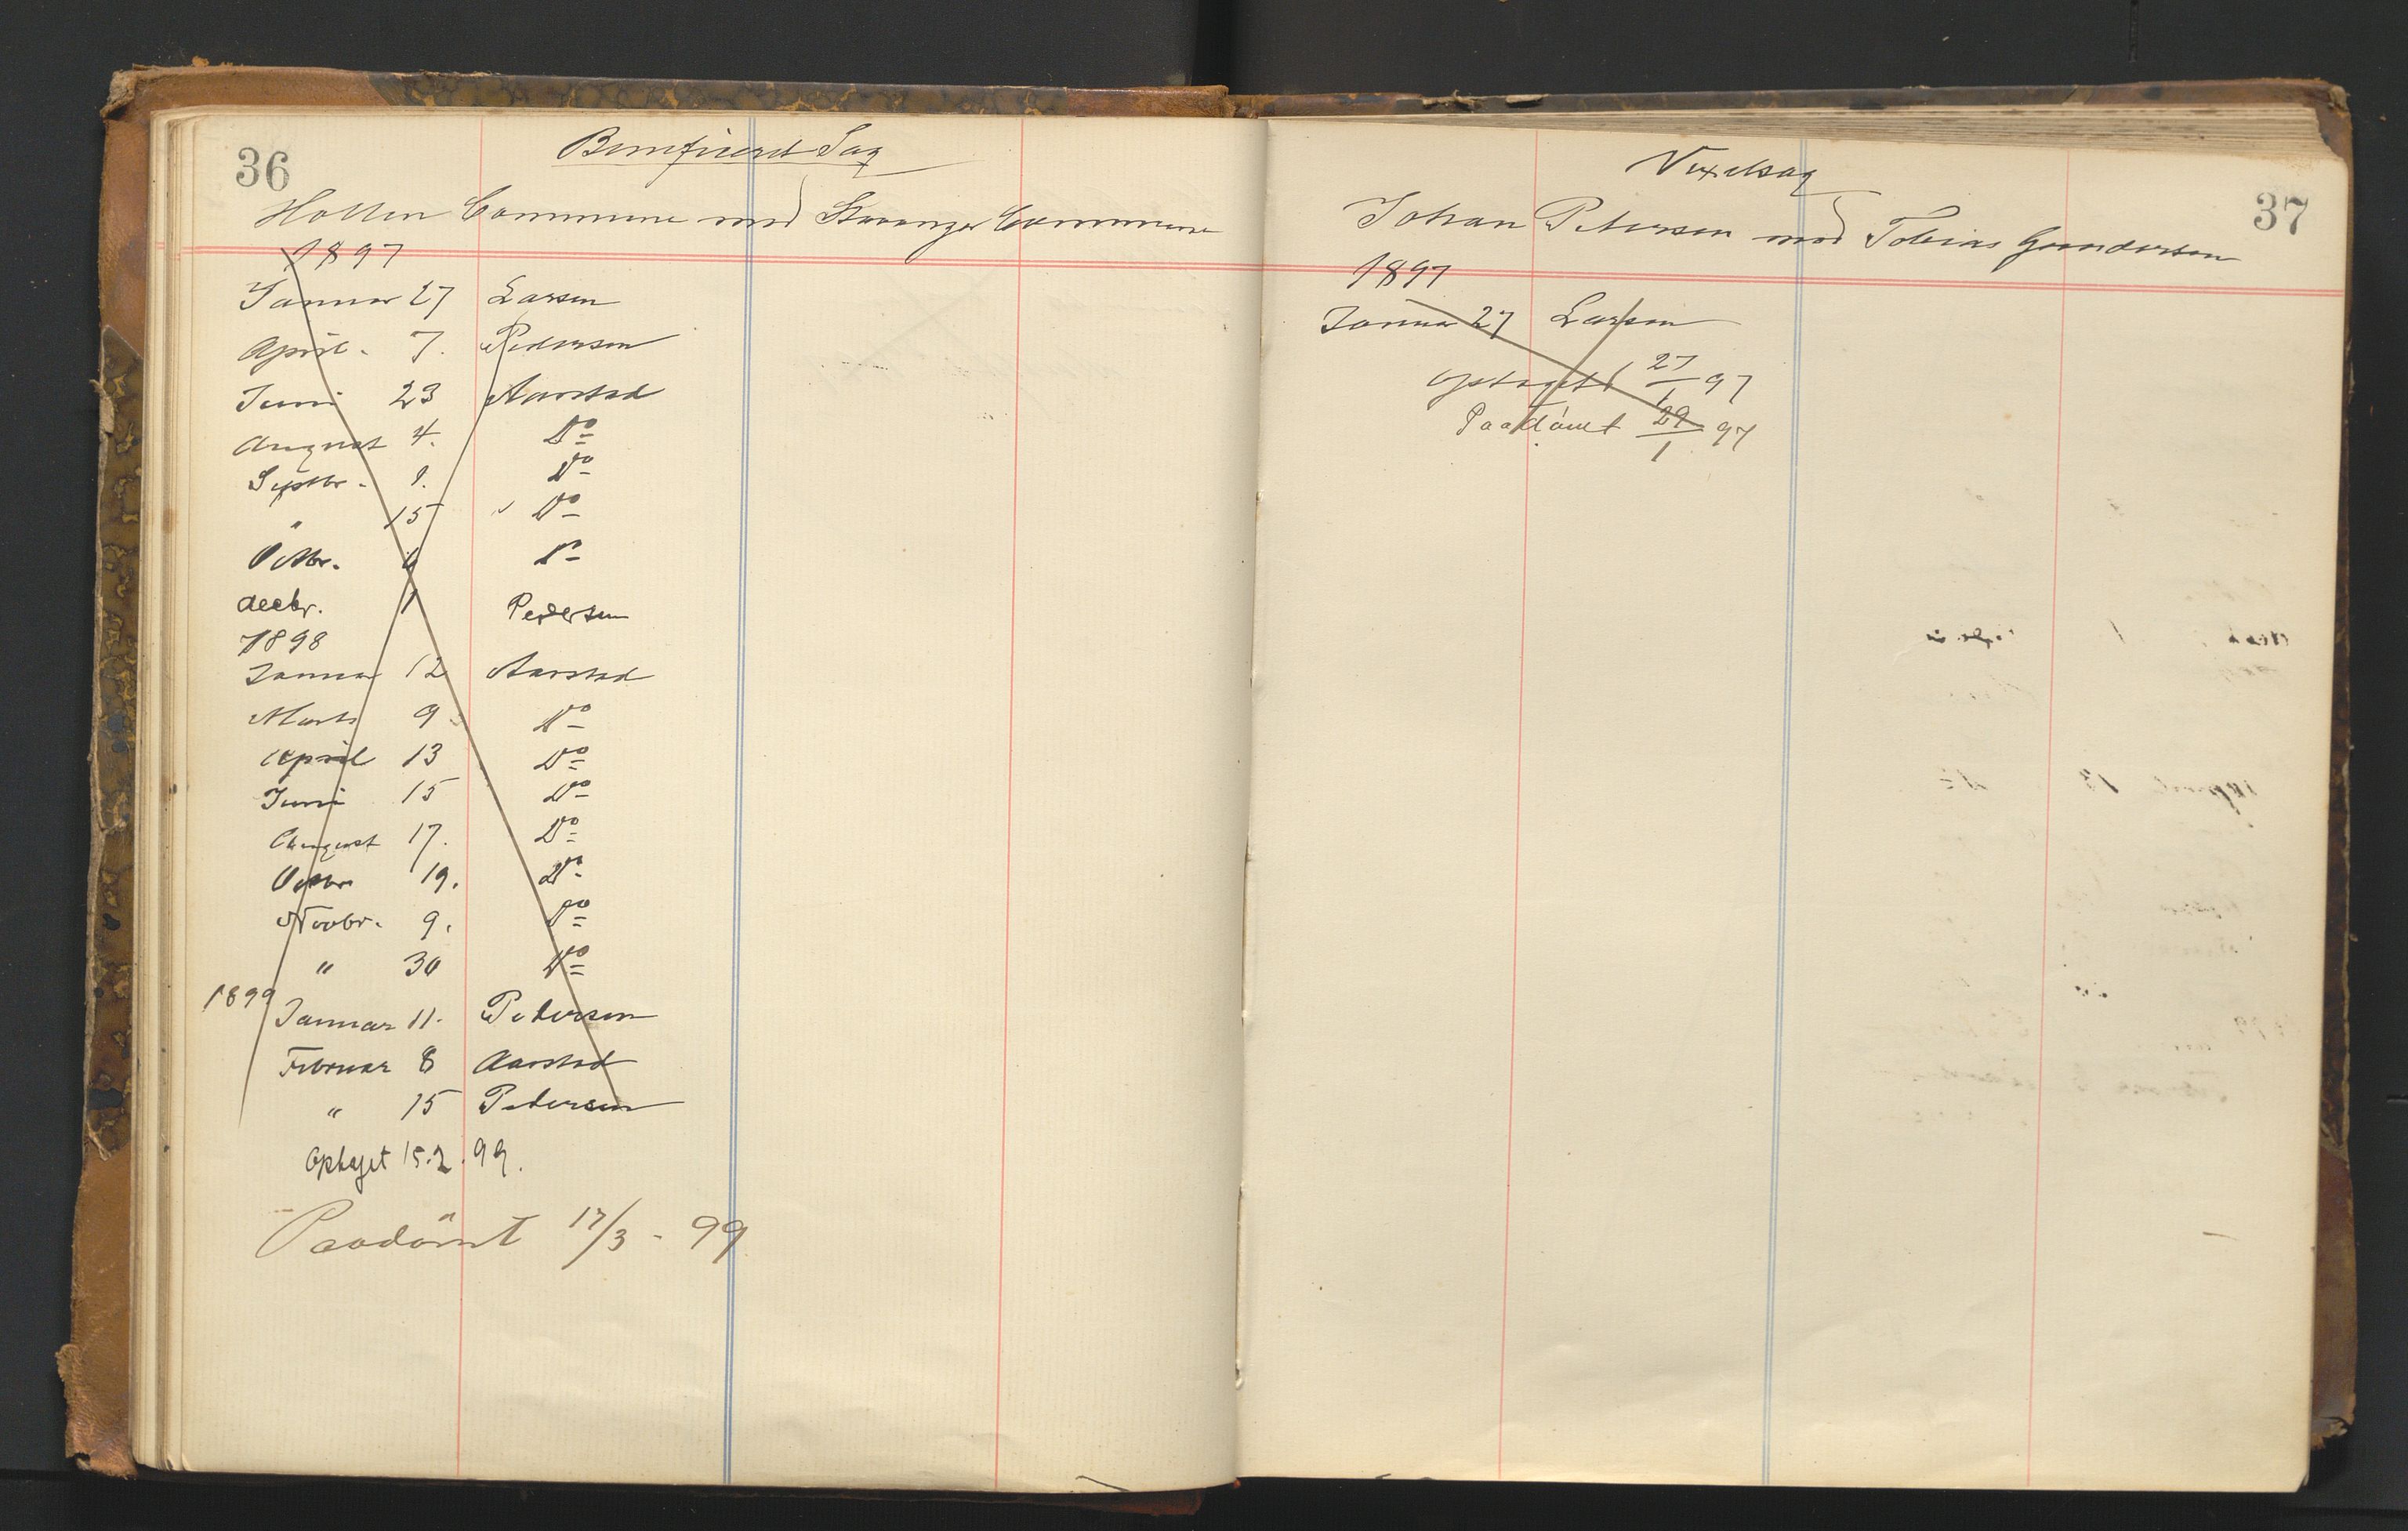 36
Beneficeret Sag
Holten Commune mod Stavanger Commune
1897
Januar 27 Larsen
April. 7. Pedersen
Juni 23 Aarstad
August 4. Do
Septbr. 1. Do
" 15 Do
Octbr. 6 Do
decbr. 1 Pedersen
1898
Januar 12 Aarstad
Marts 9 Do
April 13 Do
Juni 15 Do
August 17. Do
Octbr 19. Do
Novbr. 9. Do
" 30 Do
1899
Januar 11. Petersen
Februar 8 Aarstad
" 15 Petersen
Optaget 15.2.99.
Paadömt 17/3 - 99
37
Vexelsag
Johan Petersen mod Tobias Gundersen
1897
Januar 27 Larsen
Optaget 27/1 97
Paadömt 29/1 97